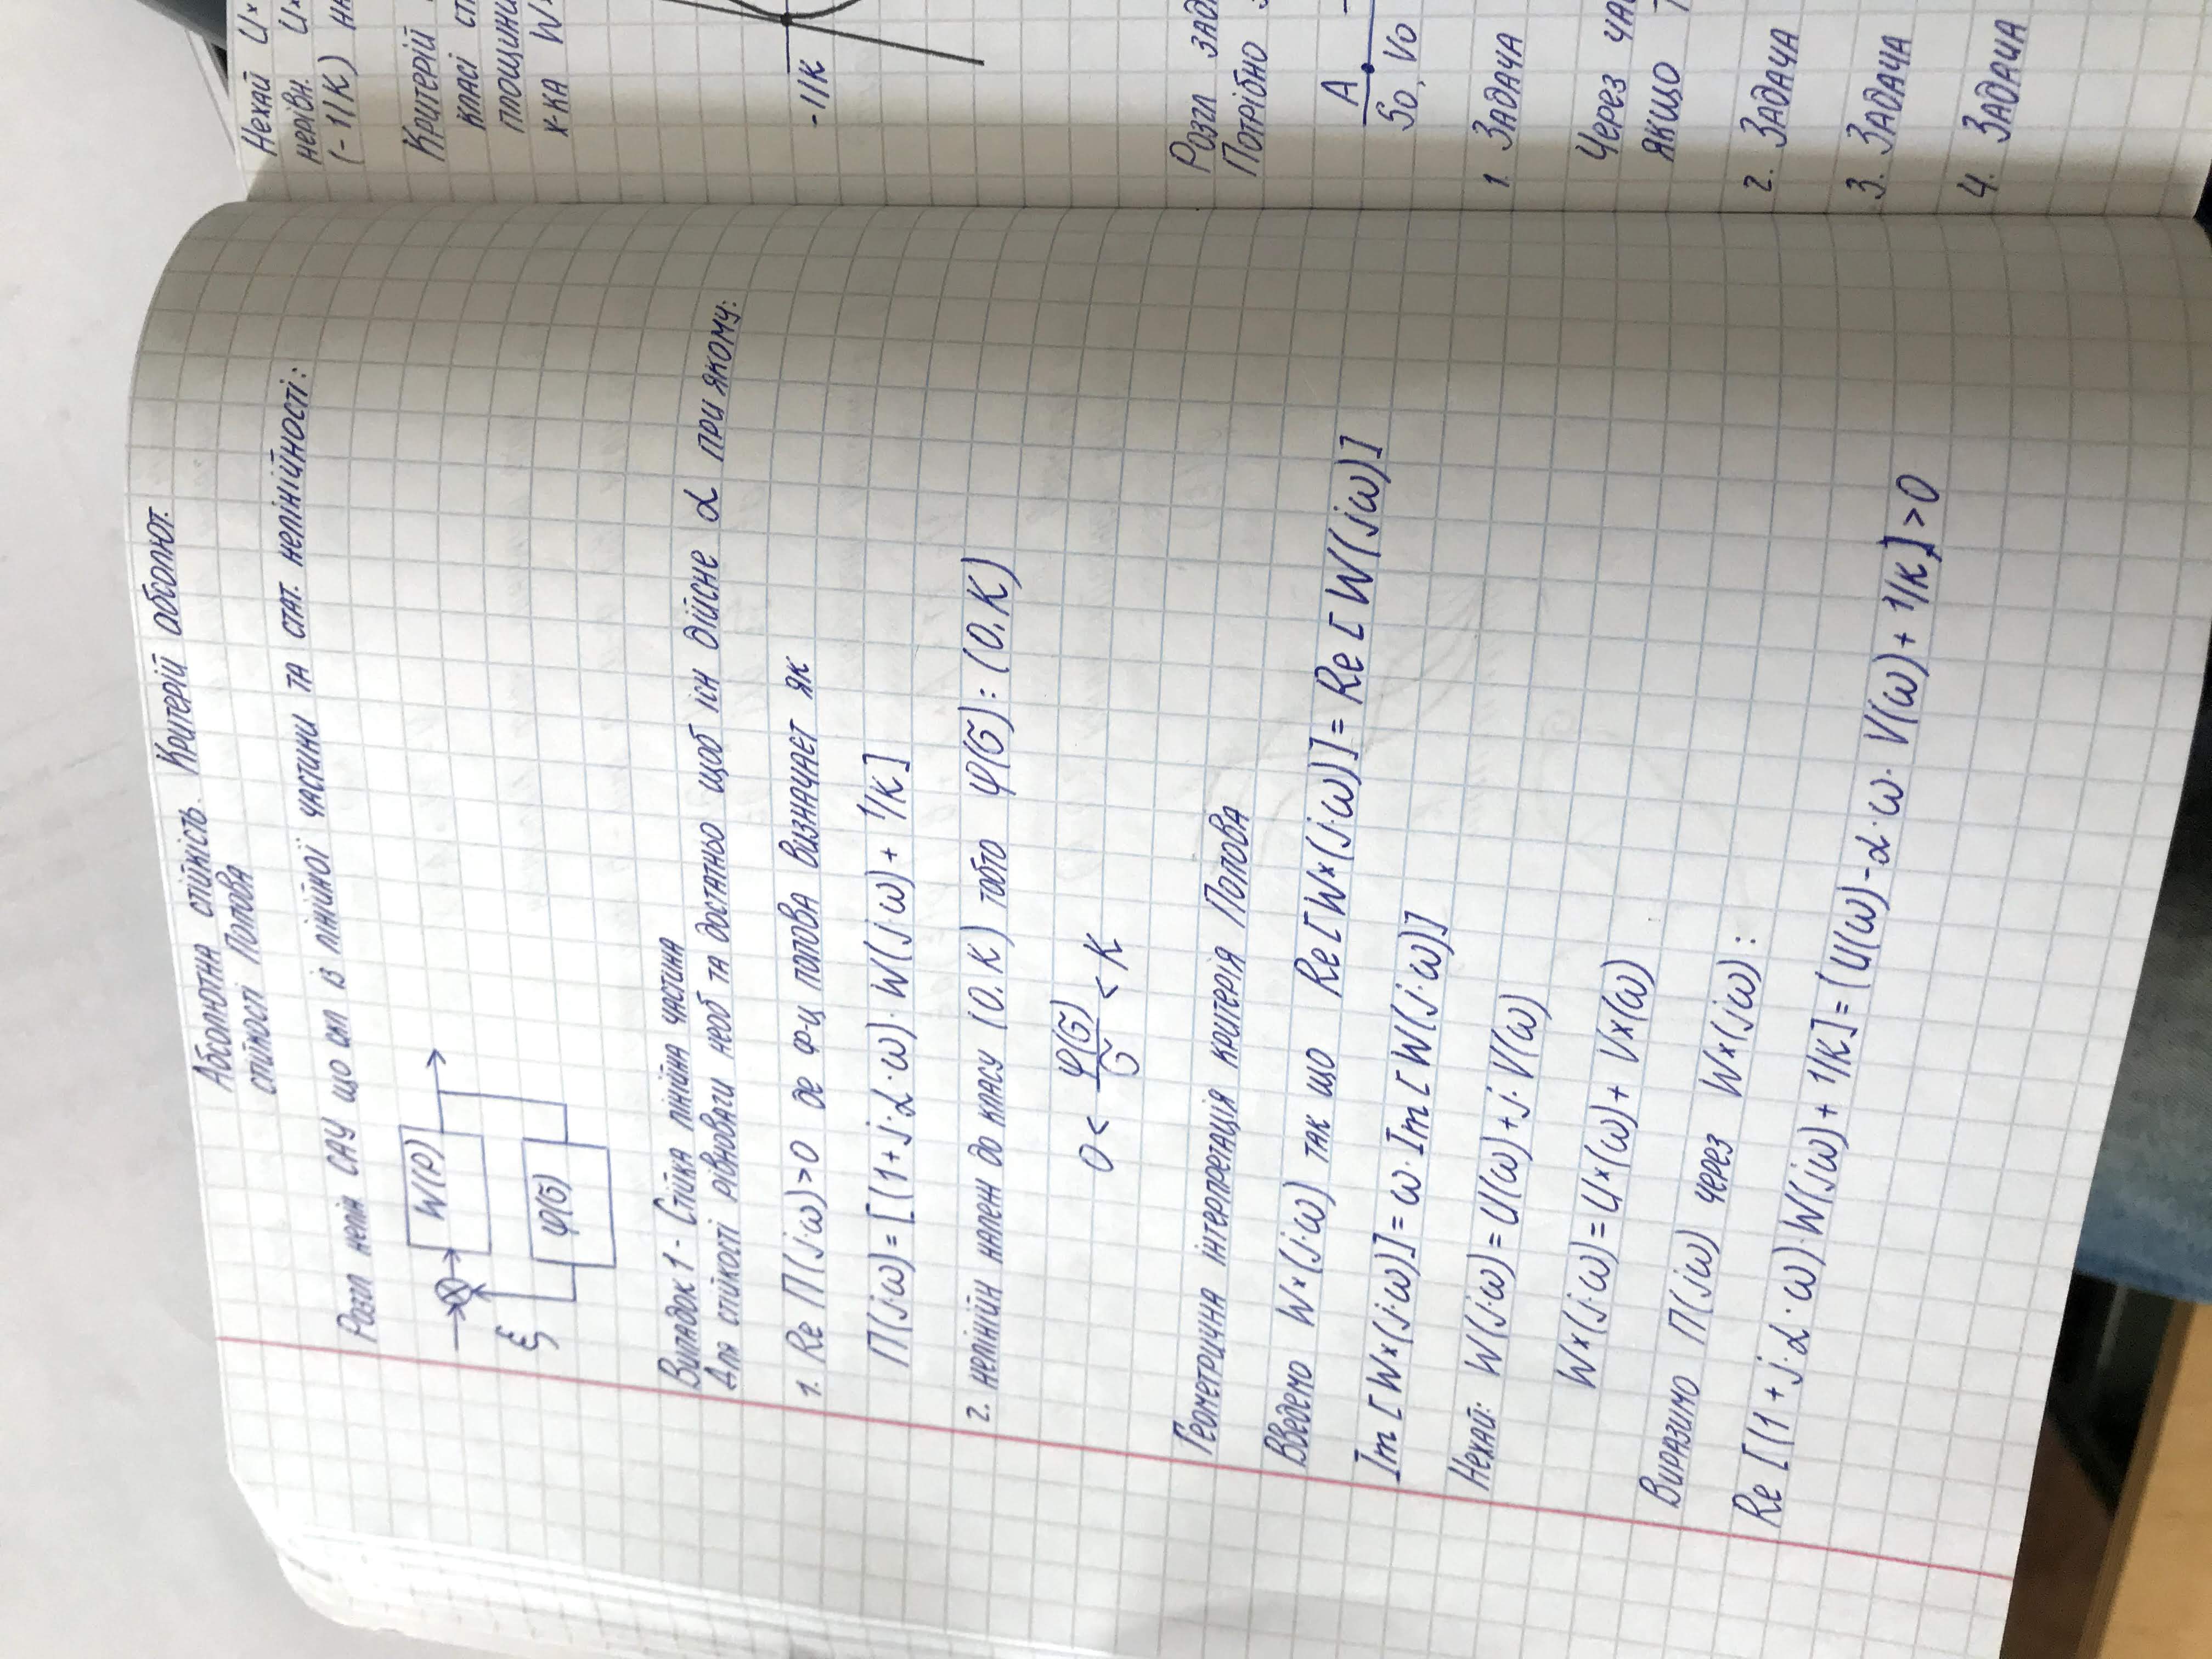 Абсолютна стійкість. Критерій абсолют.
стійкості Попова
Розгл нелін САУ що скл із лінійної частини та стат. нелінійності:
W(P)
ξ
φ(σ)
Випадок 1 - Стійка лінійна частина
Для стійкості рівноваги необ та достатньо щоб існ дійсне α при якому:
1. Re П(j·ω)>0 де ф-ц попова визначаєт як
П(j·ω)=[(1+j·α·ω)·W(j·ω)+ 1/K]
2. нелінійн належ до класу (0,K) тобто φ(σ):(0,K)
0< φ(σ)/σ < K
Геометрична інтерпретація критерія Попова
Введемо W×(j·ω) так що Re[W×(j·ω)]=Re[W(jω)]
Im[W×(j·ω)]=ω·Im[W(j·ω)]
Нехай: W(j·ω)=U(ω)+j·V(ω)
W×(j·ω)=U×(ω)+ V×(ω)
Виразимо П(jω) через W×(jω):
Re[(1+j·α·ω)·W(jω)+ 1/K]=(U(ω)-α·ω·V(ω)+ 1/K]>0
Нехай U×
нерівн. U×
(-1/K) на
Критерій
класі ст
площини
х-ка W×
-1/K
Розгл зад
Потрібно з
A
S0, V0
1. Задача
Через ча
якщо Т
2. Задача
3. Задача
4. Задача